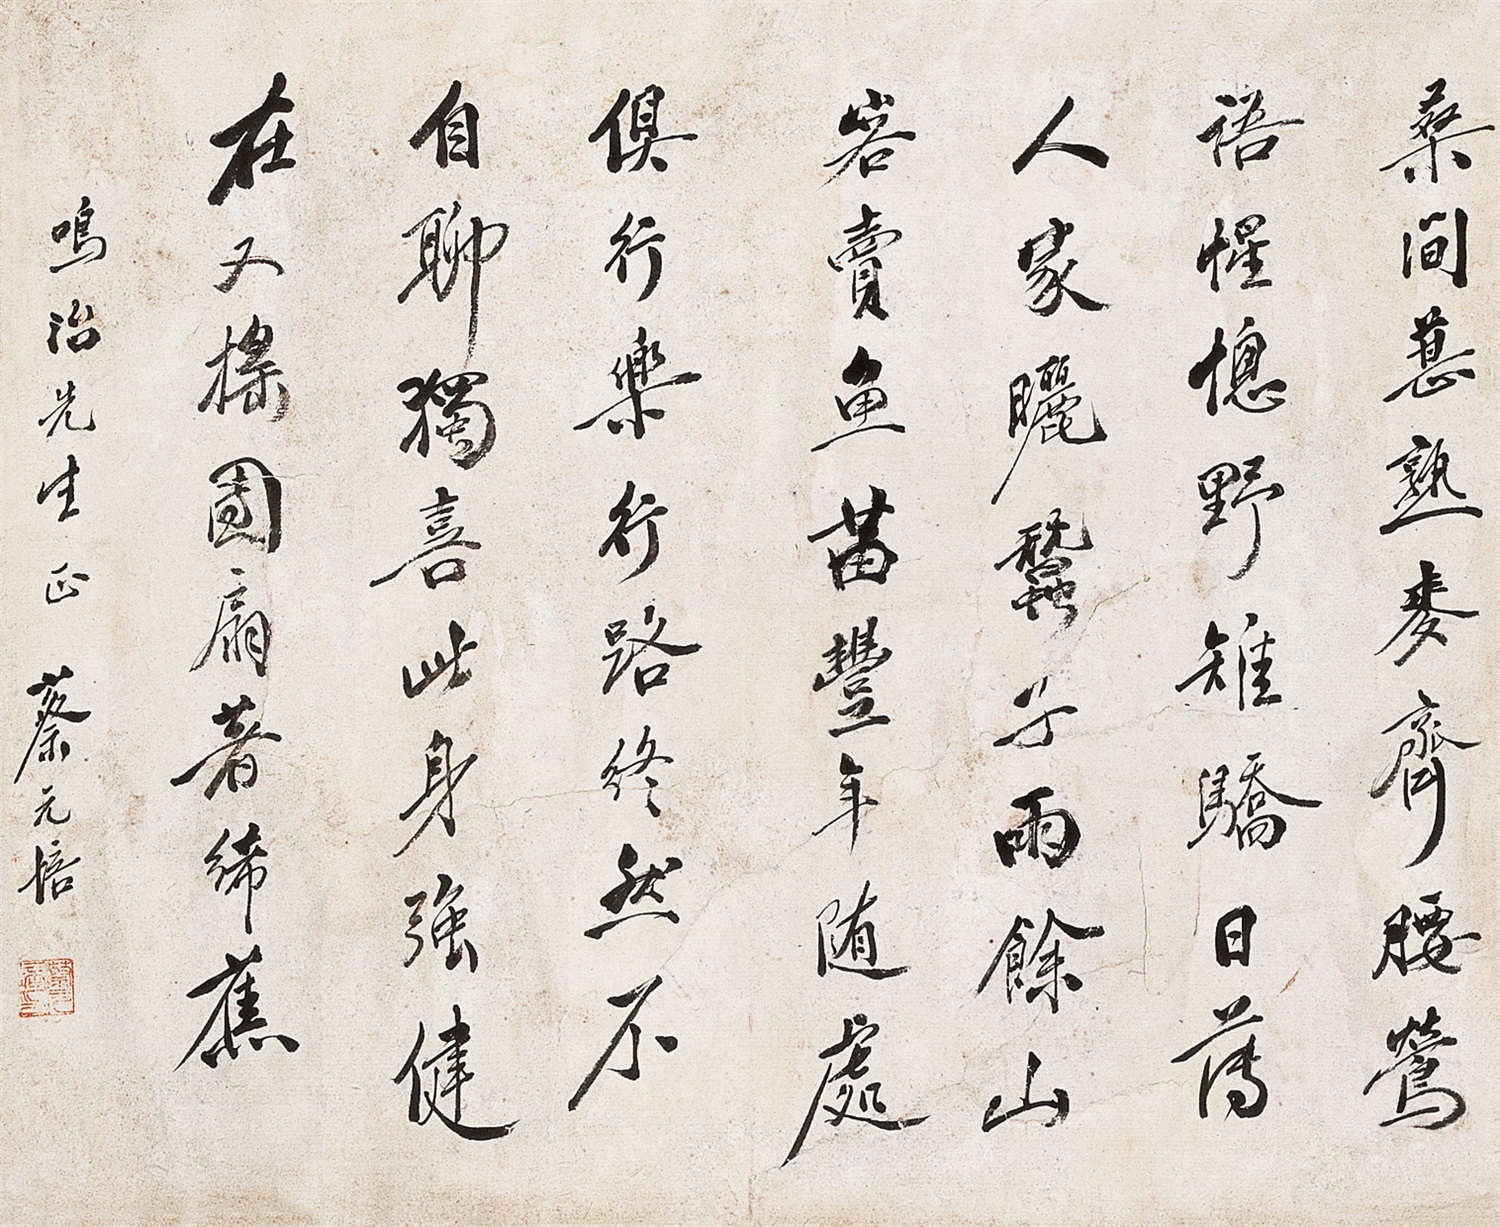 桑間葚熟麥齊腰鶯
語惺憁野雉驕日薄
人家曬蠶子雨餘山
客賣魚苗豐年随處
俱行樂行路終然不
自聊獨喜此身強健
在又搖團扇著絺蕉
鳴治先生正 蔡元培